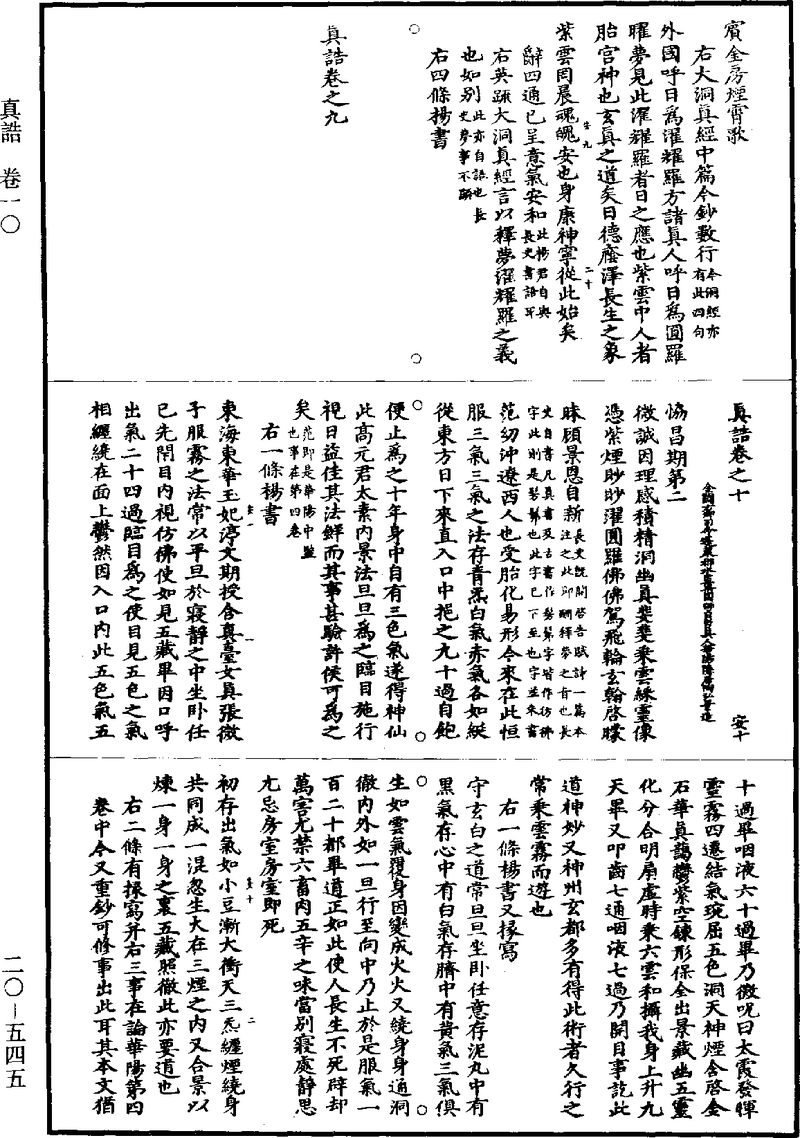 賓金房煙霄歌
右大洞真經中篇今鈔數行今洞經亦有此四句
外國呼日為濯耀羅方諸真人呼日為圓羅
曜夢見此濯耀羅者日之應也紫雲中人者
胎宮神也玄真之道矣日德廕澤長生之象
紫雲罔晨魂魄安也身康神寧從此始矣
辭四通已呈意氣安和此楊君自與長史書語耳
右英疏大洞真經言以釋夢濯耀羅之義
也如別此亦自語也長史夢事不顯
右四條楊書
真誥卷之九
真誥卷之十
安十
協昌期第二
微誠因理感積精洞幽真斐斐乘雲綵靈像
憑紫煙眇眇濯圓羅佛佛駕飛輪玄翰啓矇
昧顧景恩自新長史既聞啓告賦詩一篇本注之此即酬釋夢之旨也長史自書凡真書及古書作髣髴字皆作彷彿字此則是髣髴也此字已下至也字並朱書
范幼沖遼西人也受胎化易形今來在此恒
服三氣三氣之法存青炁白氣赤氣各如綖
從東方日下來直入口中挹之九十過自飽
便止為之十年身中自有三色氣遂得神仙
此高元君太素內景法旦旦為之臨目施行
視日益佳其法鮮而其事甚驗許侯可為之
矣范即是華陽中監也事在第四卷
右一條楊書
東海東華玉妃淳文期授含真臺女真張微
子服霧之法常以平旦於寢靜之中坐臥任
己先閉目內視仿佛使如見五藏畢因口呼
出氣二十四過臨目為之使目見五色之氣
相纏繞在面上鬱然因入口內此五色氣五
十過畢咽液六十過畢乃微呪曰太霞發暉
靈霧四遷結氣琬屈五色洞天神煙合啓金
石華真藹鬱紫空鍊形保全出景藏幽五靈
化分合明扇虛時乘六雲和攝我身上升九
天畢又叩齒七通咽液七過乃開目事訖此
道神妙又神州玄都多有得此術者久行之
常乘雲霧而遊也
右一條楊書又掾寫
守玄白之道常旦旦坐臥任意存泥丸中有
黑氣存心中有白氣存臍中有黃氣三氣俱
生如雲氣覆身因變成火火又繞身身通洞
徹內外如一旦行至向中乃止於是服氣一
百二十都畢道正如此使人長生不死辟却
萬害尤禁六畜肉五辛之味當別寢處靜思
尤忌房室房室即死
初存出氣如小豆漸大衝天三炁纏煙繞身
共同成一混忽生大在三煙之內又合景以
煉一身一身之裏五藏照徹此亦要道也
右二條有掾寫并右三事在論華陽第四
卷中今又重鈔可修事出此耳其本文猶
真誥 卷一〇
二〇-五四五